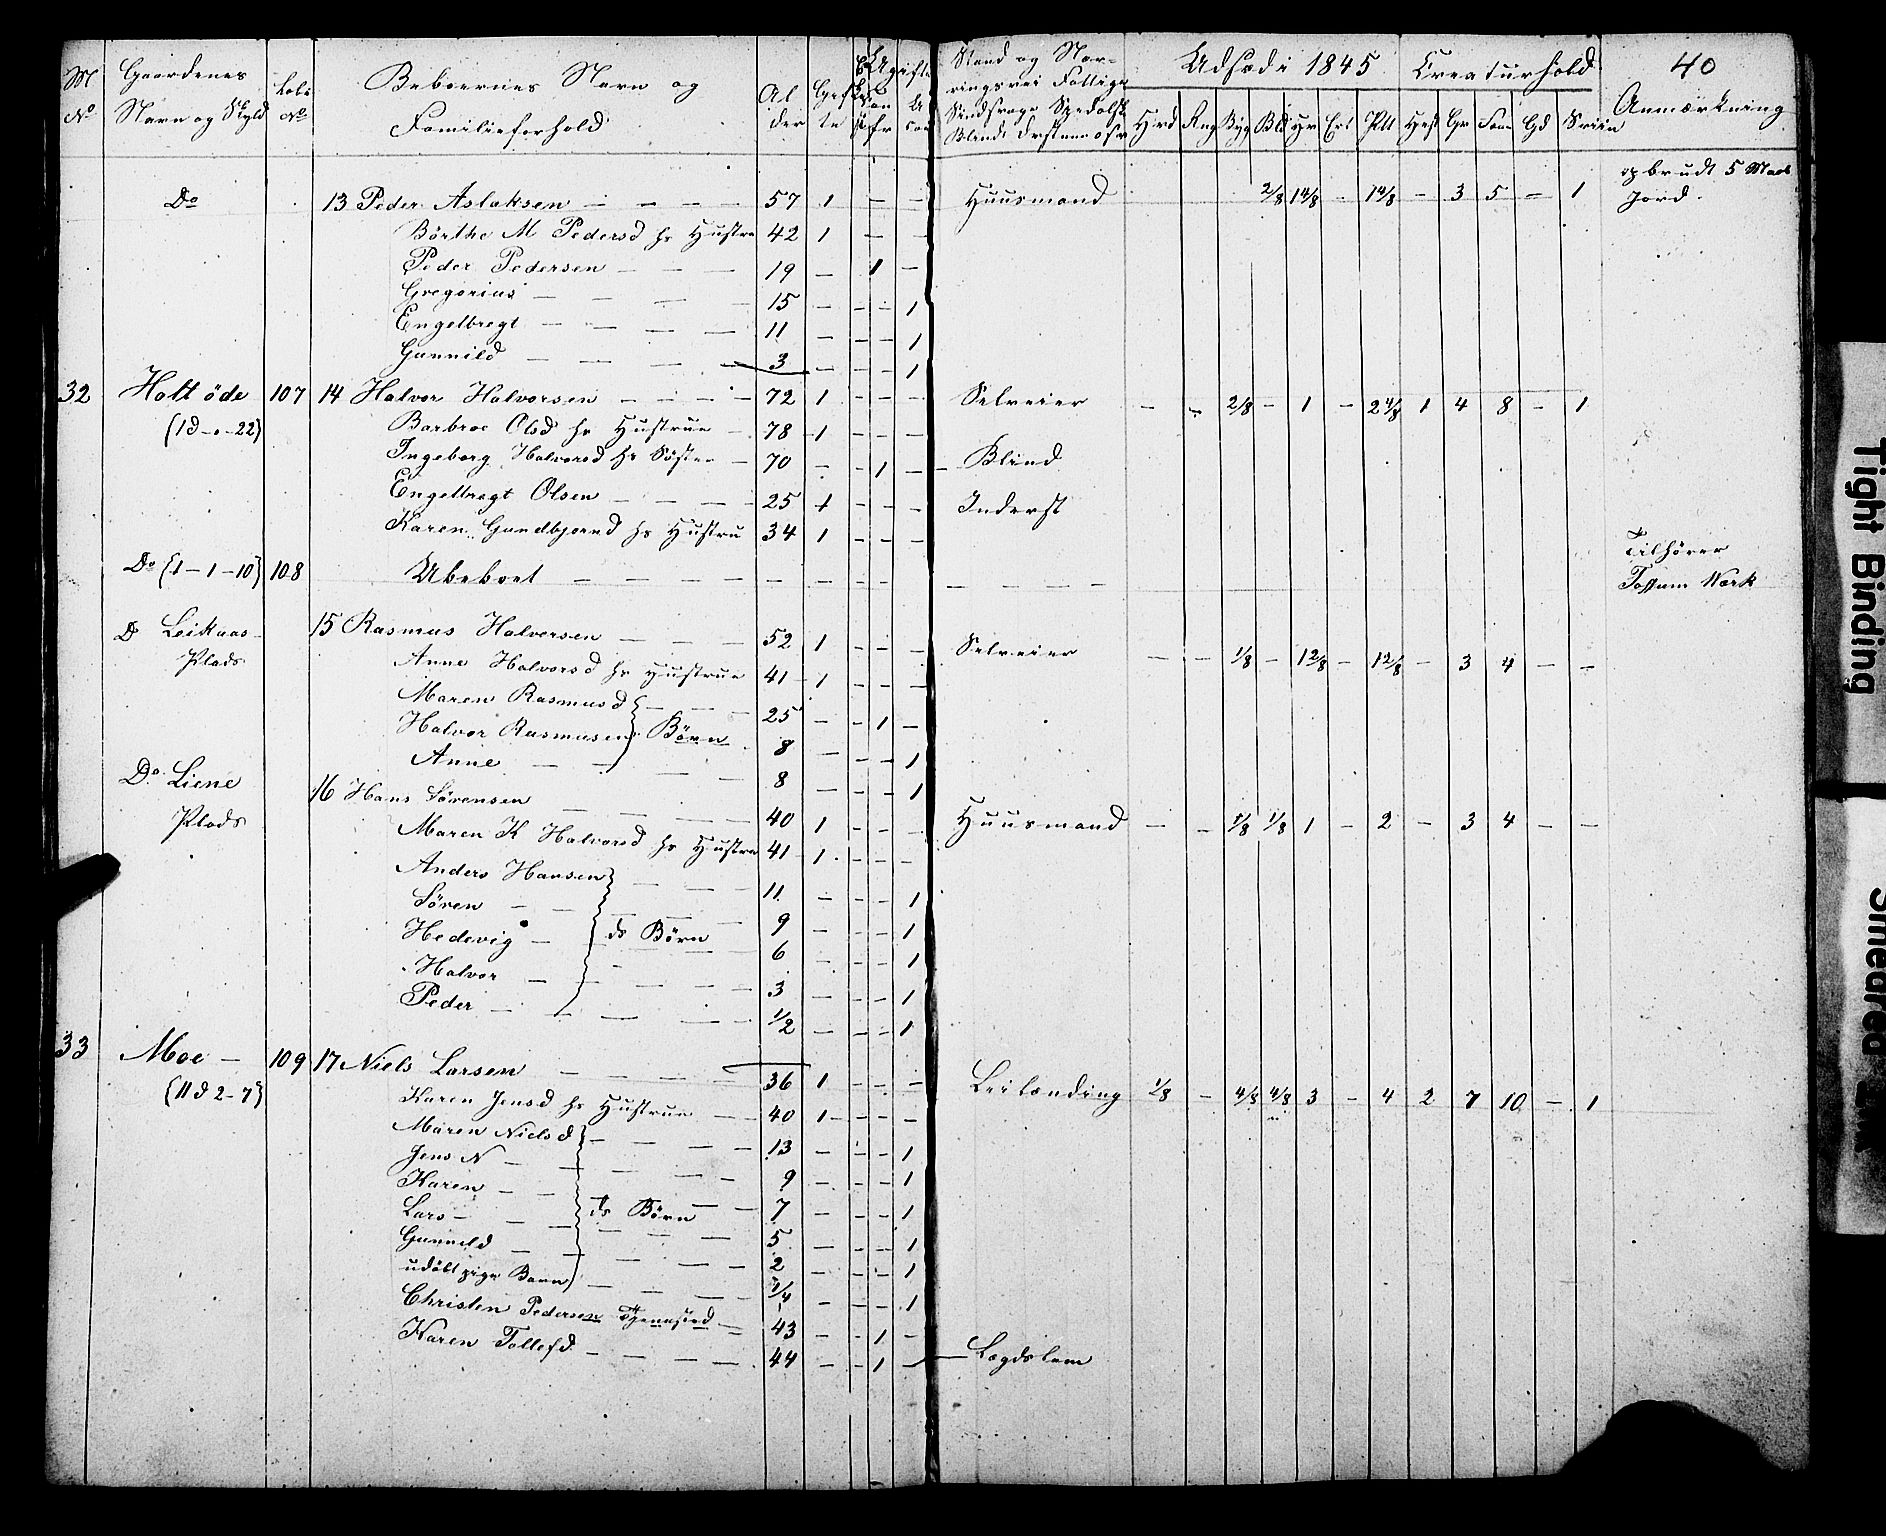 M No Gaardenes Navn og Skyld Løbe No Beboernes Navn og Familieforhold Alder Gifte Ugifte
Stand og Næringsvei Fattige Sindsvage Spedalsk Blinde Døstumme osv Udsæd i 1845 Creaturhold 40
Hvd Rug Byg Bld Hvr Ert Ptt Hest Qv Faar Gd Sviin Anmærkning
Do 13 Peder Aslaksen — — — — 57 1 — — Huusmand 2/8 14/8 — 14/8 — 3 5 — 1 opbrudt 5 Maal Jord.
Börthe M Pedersd hs Hustru 42 1 — —
Peder Pedersen — — — 19 — 1 —
Gregorius — — — — 15 — — — 1
Engelbregt — — — — 11 — — — 1
Gunnild — — — 3 — — — 1
32 Holt öde 107 14 Halvor Halvorsen — — — — 72 1 — — — Selveier — — 2/8 — 1 — 2 4/8 1 4 8 — 1
{1d - " - 22} Barbroe Olsd hs Hustrue — 78 1 — — —
Ingeborg Halvorsd hs Söster — 70 — — 1 — Blind
Engelbregt Olsen — — — — 25 1 — — — Inderst
Karen Gundbjörnd hs Hustru 34 1 — — —
Do {1-1-10} 108 Ubeboet — — — — — — — — — — — — — Tilhörer
Fossum Værk
Do Leikaas 15 Rasmus Halvorsen — — — 52 1 — — — Selveier — — 1/8 — 12/8 — 12/8 — 3 4 — —
Plads Anne Halvorsd hs Hustrue 41 1 — — —
Maren Rasmusd — — — 25 — — 1 —
Halvor Rasmusen } Börn 8 — — — 1
Anne — — — — 8 — — — 1
Do Liene 16 Hans Sörensen — — — — 40 1 — — — Huusmand — — 1/8 1/8 1 — 2 — 3 4 — —
Plads Maren K Halvorsd hs Hustru 41 1 — — —
Anders Hansen — — — 11 — — — 1
Sören — — — — 9 — — — 1
Hedevig — } ds Börn — 6 — — — 1
Halvor — — — — 3 — — — 1
Peder — — — — 1/2 — — — 1
33 Moe — 109 17 Niels Larsen — — — — 36 1 — — — Leilænding 1/8 — 4/8 4/8 3 — 4 2 7 10 — 1
{11d 2-7} Karen Jensd hs Hustrue — 40 1 — — —
Maren Nielsd — — — 13 — — — 1
Jens N — — — — 9 — — — 1
Karen — — — — 7 — — — 1
Lars — } ds Börn 5 — — — 1
Gunnild — — — — 2 — — — 1
udöbt pige Barn — — — 1/4 — — — 1
Christen Pedersen — 43 — — 1 —
Karen Tollefd — — — — 44 — — 1 — Lægdslem
Tight Binding
Smeared